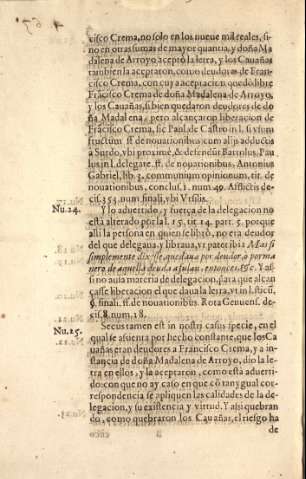 cisco Crema, no solo en los nueue mil reales, si-
no en otras sumas de mayor quantia, y doña Ma
dalena de Arroyo acepto la letra, y los Cauañas
tambien la aceptaron, como deudores de Fran-
cisco Crema, con cuya aceptacion quedò libre
Frãcisco Crema de doña Madalena de Arroyo,
y los Cauañas, si bien quedaron deudores de do
ña Madalena, pero alcançaron liberacion de
Frãcisco Crema, sic Paul. de Castro in l. si vsum
fructum ff. de nouationibus cum alijs adductis
à Surdo, vbi proximè, & defendūt Bartolus, Pau
lus in l. delegare. ff. de nouationibus, Antonius
Gabriel, lib. 3. communium opinionum, tit. de
nouationibus, conclus. 1. num. 49. Afflictis de-
cis. 353. num. finali, vbi Vrsilis.
Nu. 14. Y lo aduertido, y fuerça de la delegacion no
està alterado por la l. 15. tit. 14. part. 5. porque
alli la persona en quien se librò, no era deudor
del que delegaua, y libraua, vt patet ibi: Mas si
simplemente dixesse que daua por deudor, ò por ma
nera de aquella deuda a fulan. entonces &c. Y as-
si no auia materia de delegacion, para que alcan
çasse liberacion el que daua la letra, vt in l. sicut,
§. finali. ff. de nouationibus. Rota Genuens. de-
cis. 8. num. 18.
Nu. 15. Secus tamen est in nostri casus specie, en el
qual se assienta por hecho constante, que los Ca
uañas eran deudores a Francisco Crema, y a ins-
tancia de doña Madalena de Arroyo, dio la le-
tra en ellos, y la aceptaron, como està aduerti-
do: con que no ay caso en que cõ tan igual cor-
respondencia se apliquen las calidades de la de-
legacion, y su existencia y virtud. Y assi quebran
do, como quebraron los Cauañas, el riesgo ha
de